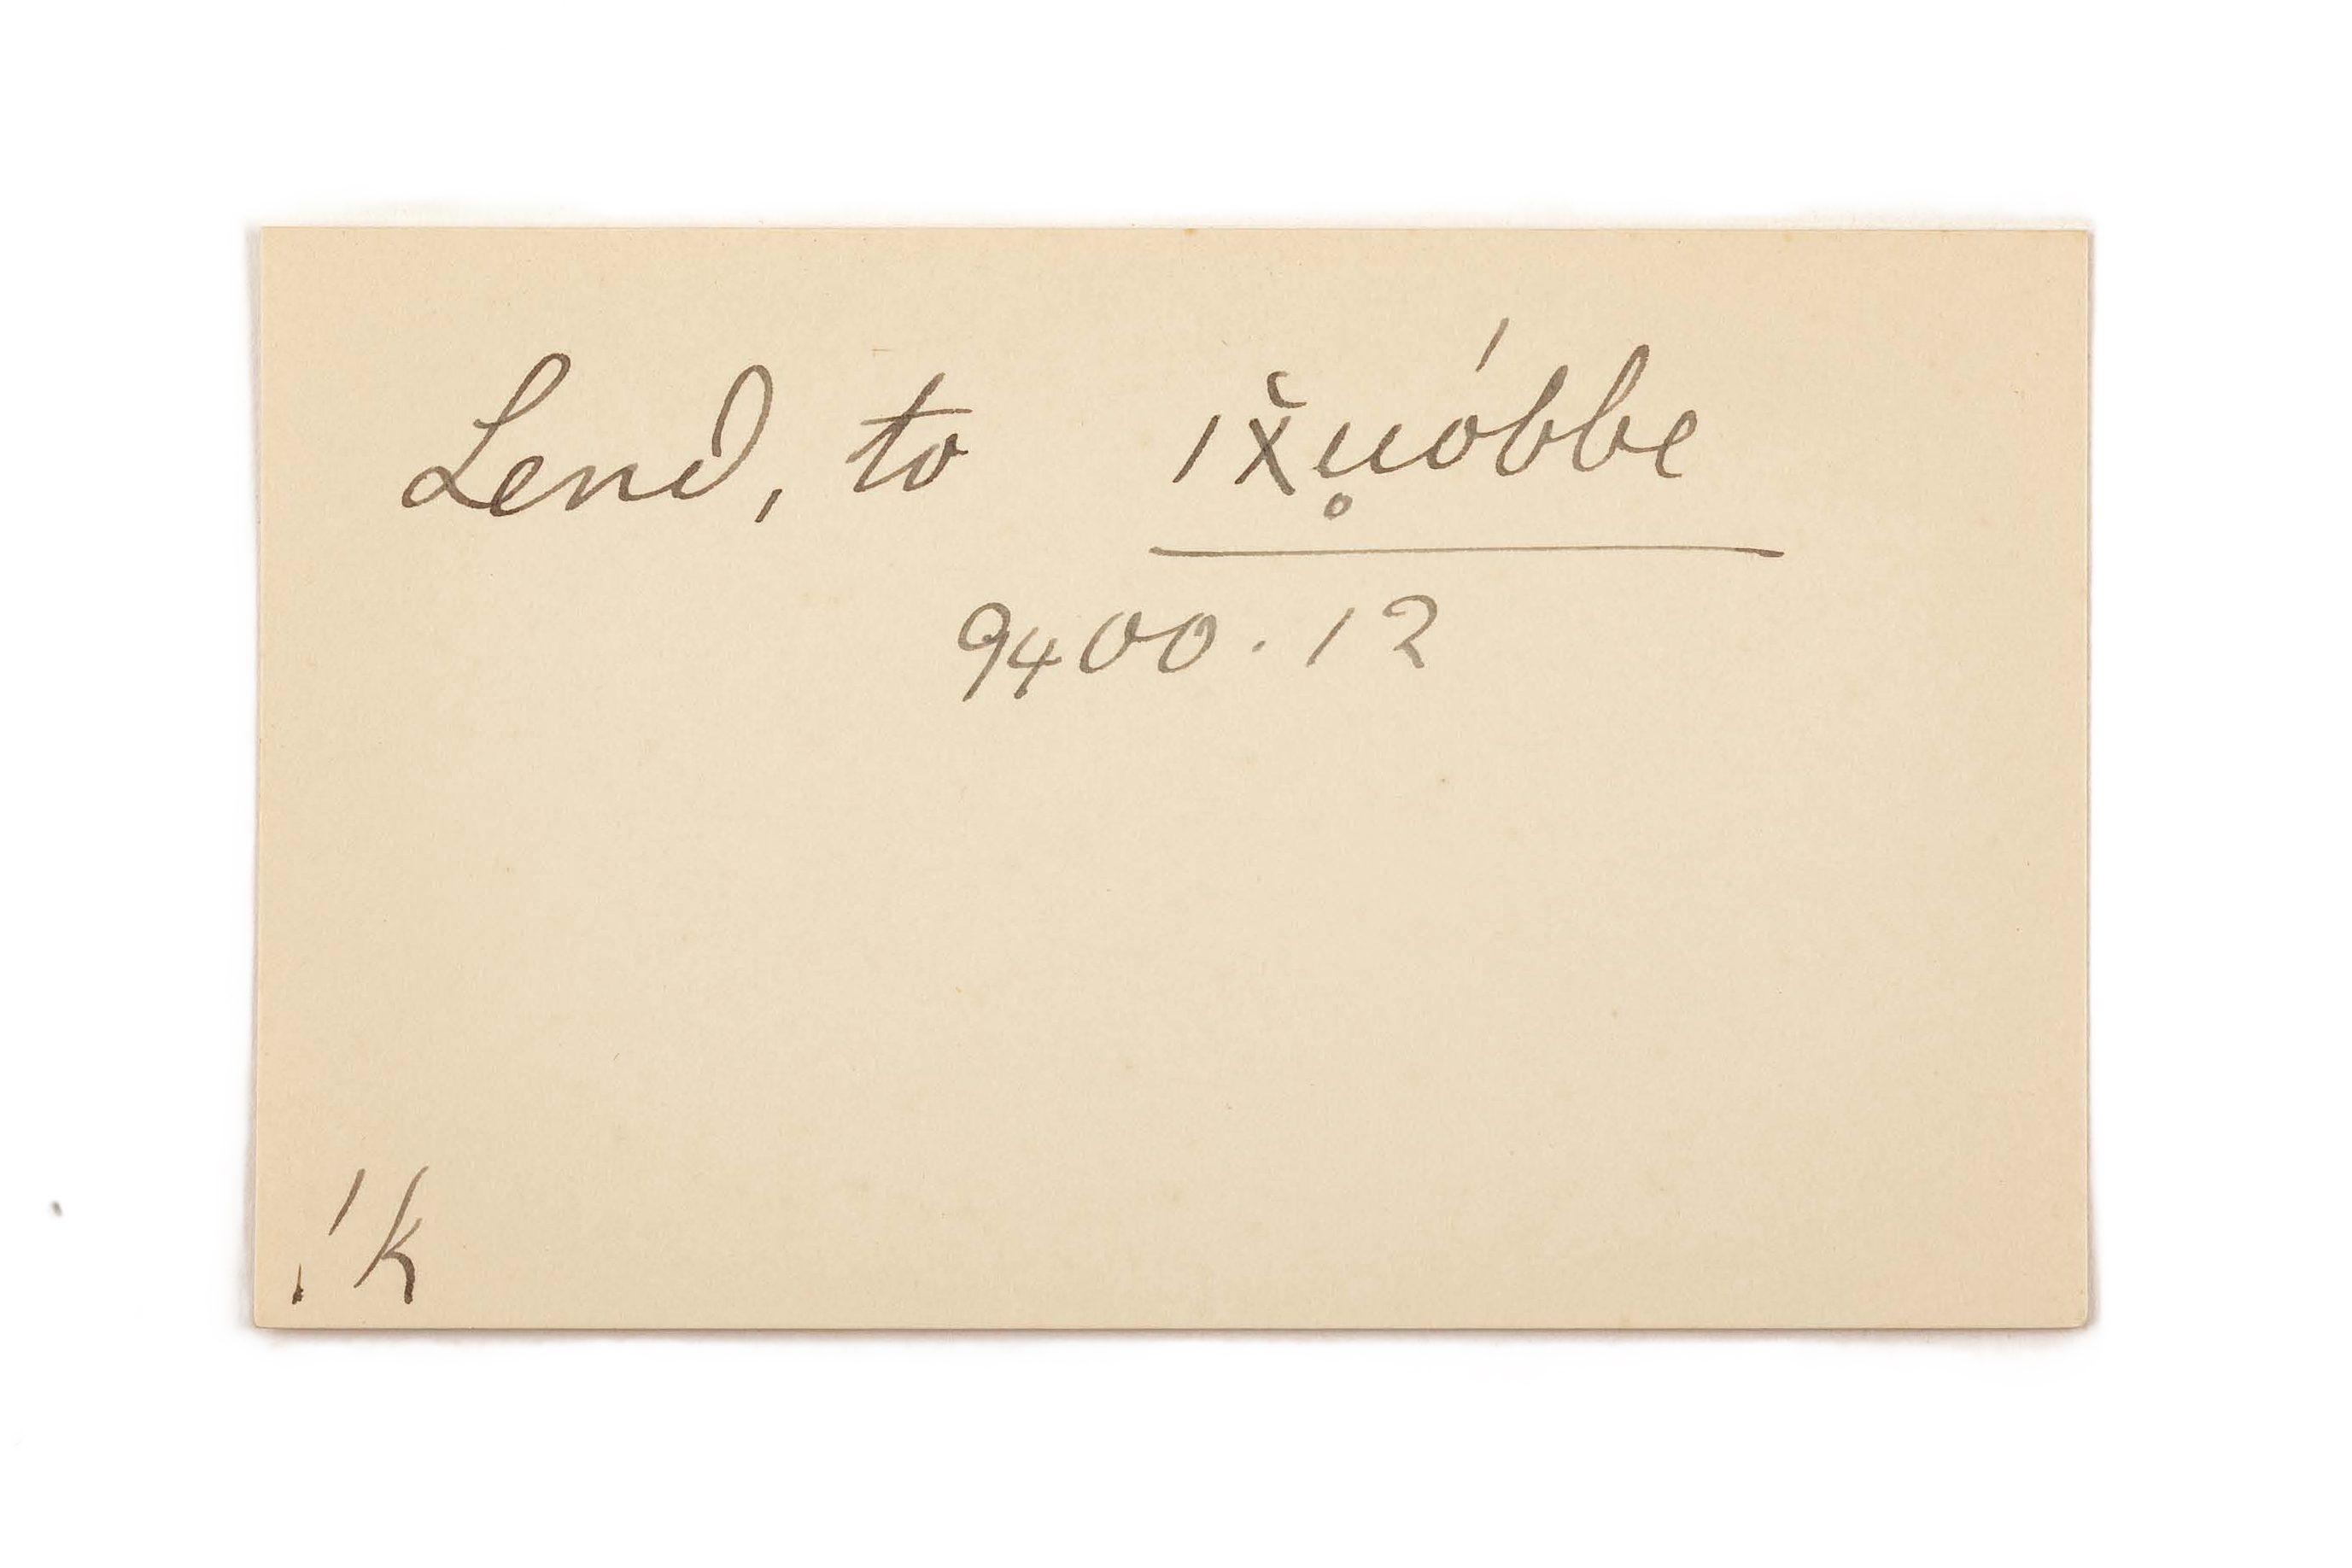 Lend, to ıx̌u̥óbbe
9400.12
!k